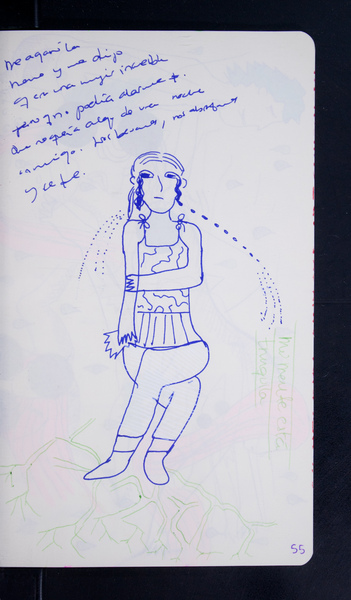 Me agarró la
mano y me dijo
q era una mujer increíble
pero q no podía darme +.
Que no quería algo de una noche
conmigo. Nos besamos, nos abrazamos
y se fue.
55